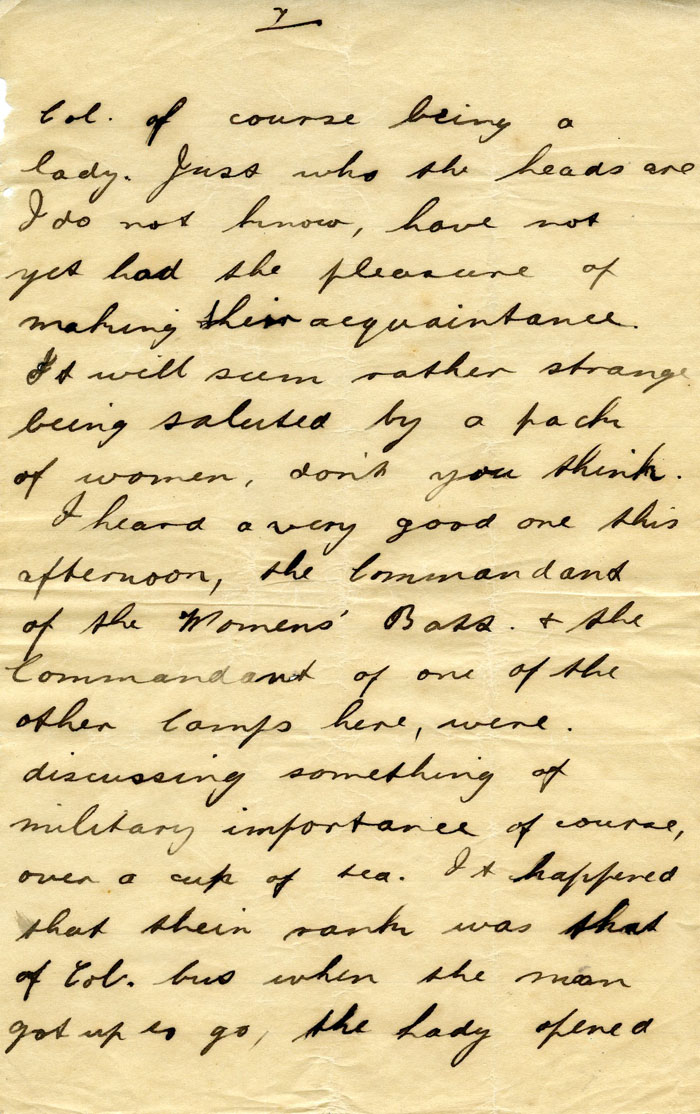 7
Col. of course being a
lady. Just who the heads are
I do not know, have not
yet had the pleasure of
making their acquaintance.
It will seem rather strange
being saluted by a pack
of women, don't you think.
I heard a very good one this
afternoon, the Commandant
of the Womens' Batt. & the
Commandant of one of the
other Camps here, were.
discussing something of
military importance of course,
over a cup of tea. It happened
that their rank was that
of Col. but when the man
got up to go, the Lady opened